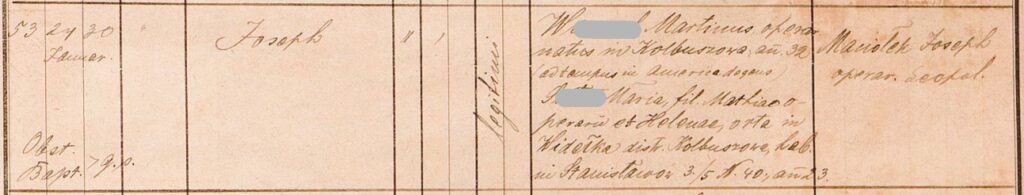 53 24 30 Joseph " , legitimi
Januar.
W Martinus opera-
natus in Kolbuszowa, añ. 32
(ad tempus in America degens)
Maria, fil. Mathiae o-
perarii et Helenae, orta in
Widełka distr. Kolbuszowa, hab.
in Stanisławów 3/5 N. 40, añ 3.
Maciołek Joseph
operar. Leopol.
Obst.
Bapt. > g. p.